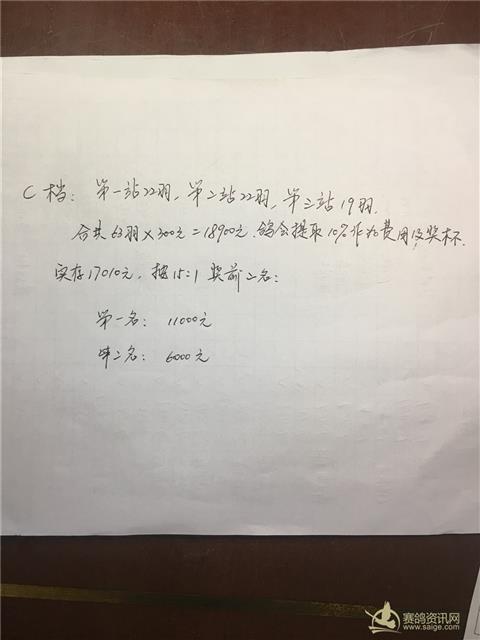 C档: 第一站22羽, 第二站22羽, 第三站19羽.
合共63羽×300元=18900元.鸽会提取10%作为费用及奖杯.
实存17010元, 按15:1奖前二名:
第一名: 11000元
第二名: 6000元
赛鸽资讯网
www.saige.com